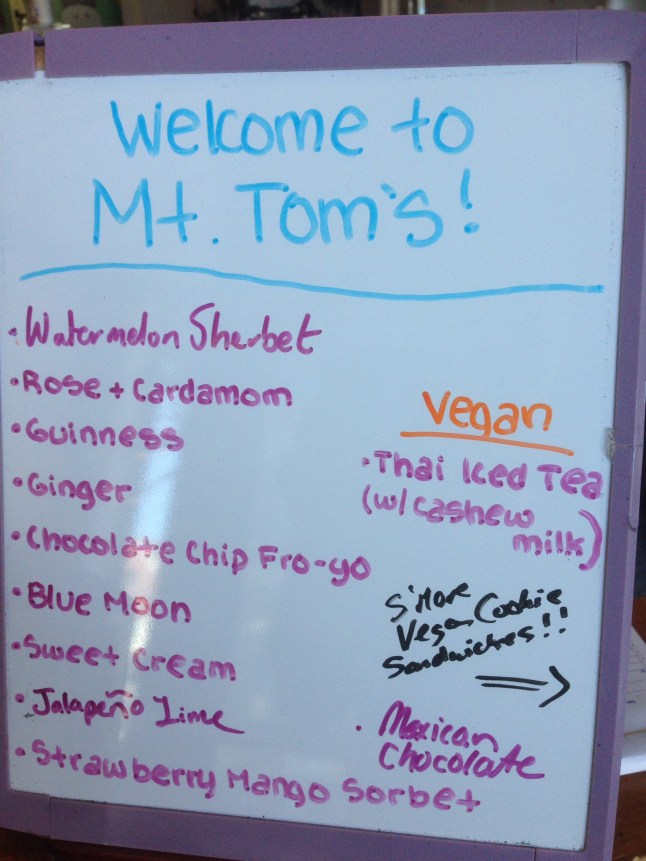 Welcome to
Mt. Tom's!
• Watermelon Sherbet
• Rose + Cardamom
• Guinness
• Ginger
• Chocolate Chip Fro-yo
• Blue Moon
• Sweet Cream
• Jalapeño Lime
• Strawberry Mango Sorbet
Vegan
• Thai Iced Tea
(w/ cashew
milk)
S'More
Vegan Cookie
Sandwiches!!
• Mexican
Chocolate